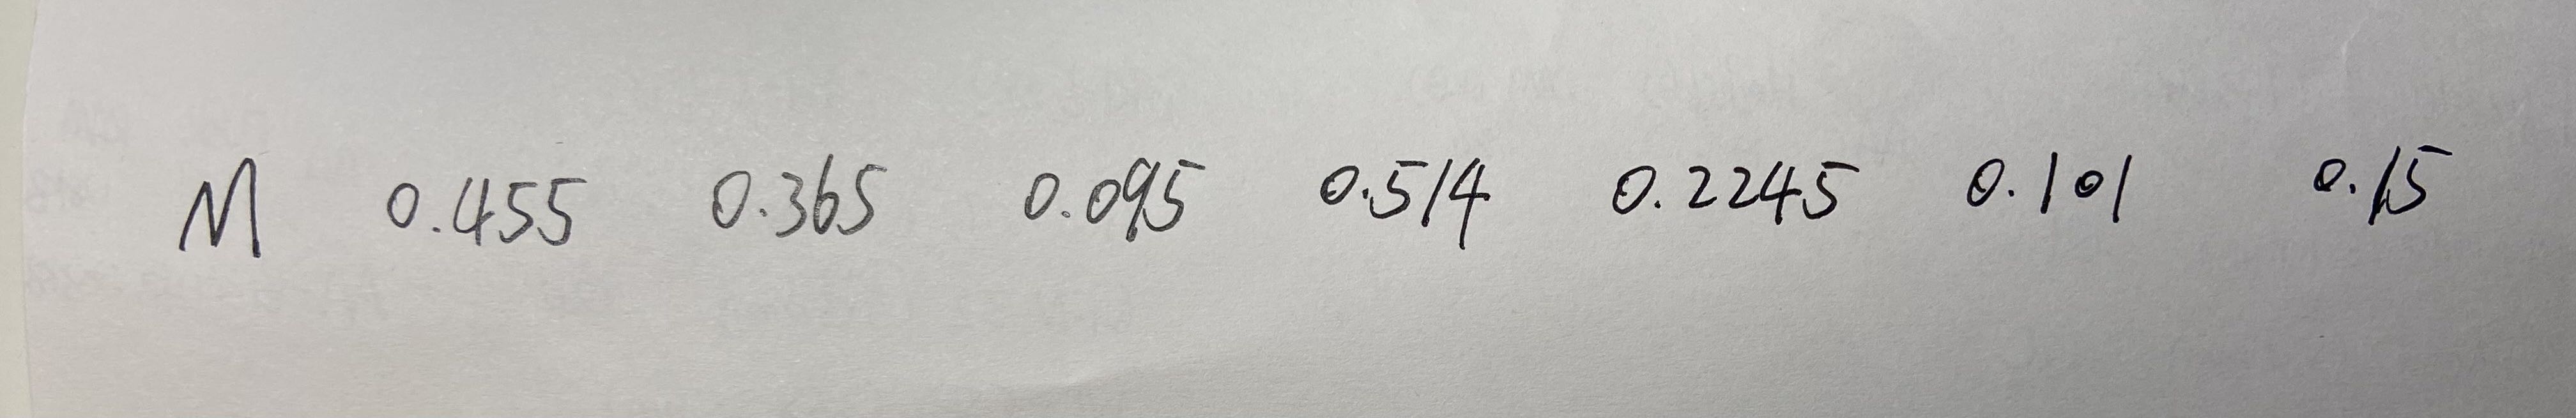 M 0.455 0.365 0.095 0.514 0.2245 0.101 0.15